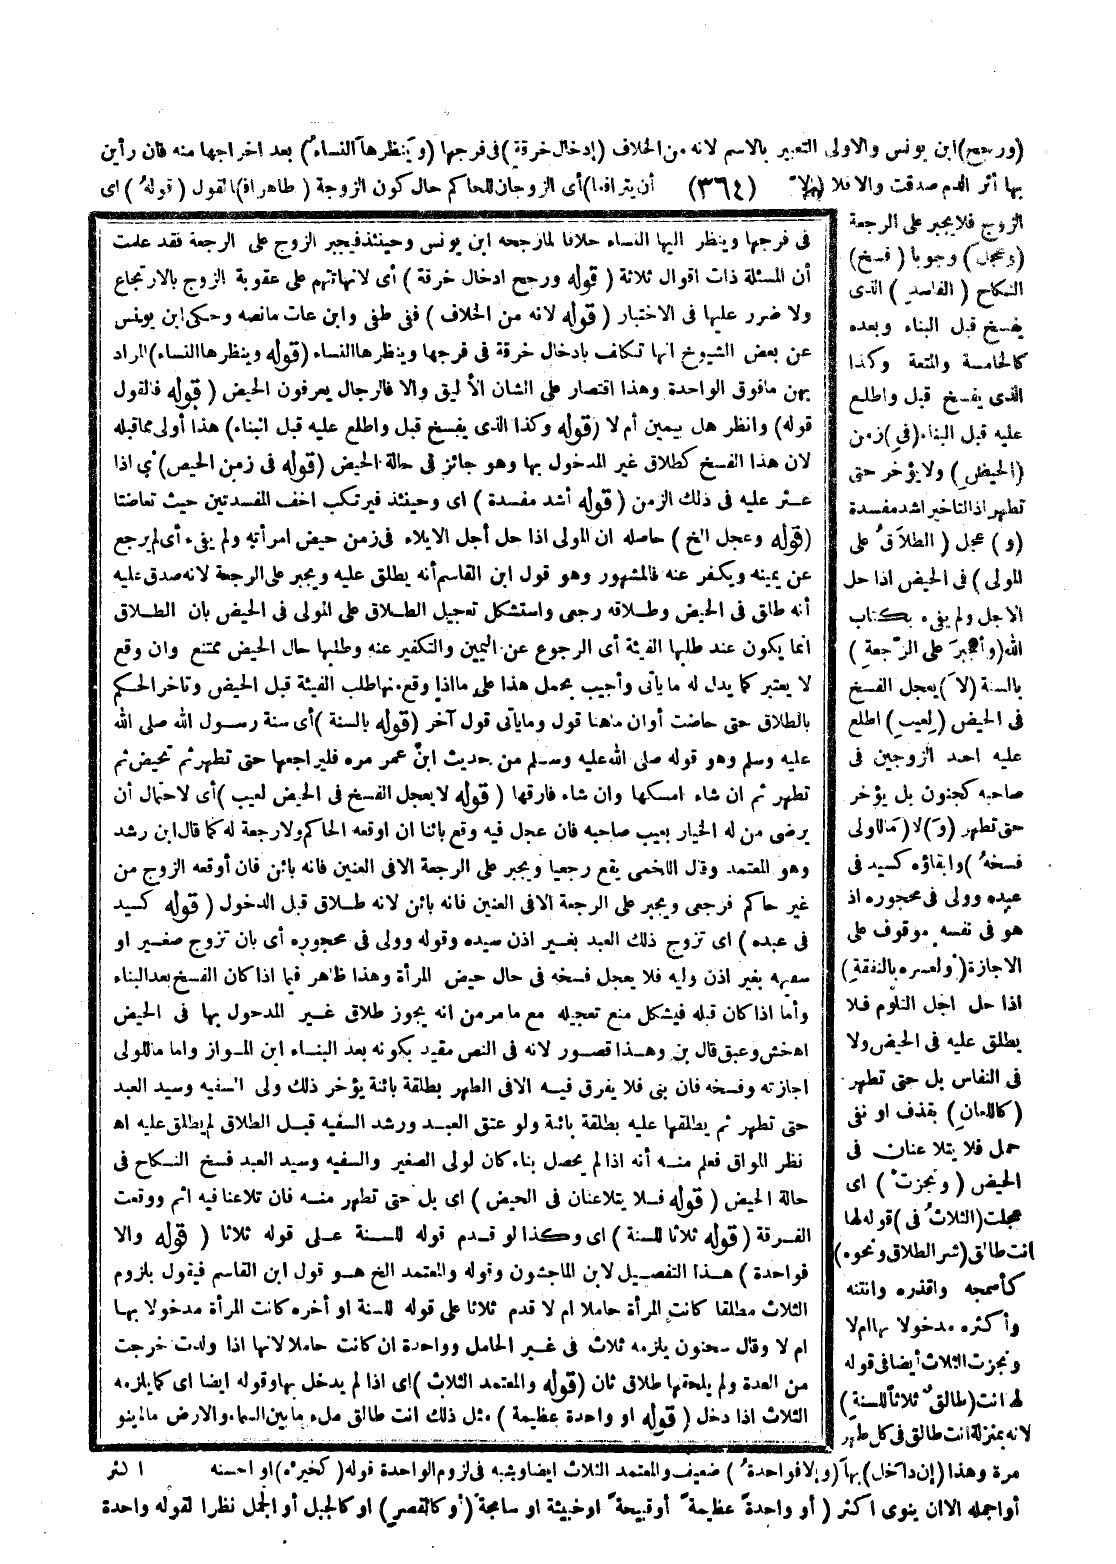 (ورجح) ابن يونس والاولى التعبير بالاسم لانه من الخلاف (إدخال خرقة) فى فرجها (وينظرها النساء) بعد اخراجها منه فان رأين
بها أثر الدم صدقت والا فلا (إلا (٣٦٤) أن يترافعا) أى الزوجان للحاكم حال كون الزوجة (طاهرا فـ)القول (قوله) اى
الزوج فلا يجبر على الرجعة
(وعجل) وجوبا (فسخ)
النكاح (الفاسد) الذى
يفسخ قبل البناء وبعده
كالخامسة والمتعة وكذا
الذى يفسخ قبل واطلع
عليه قبل البناء (في) زمن
(الحيض) ولا يؤخر حتى
تطهر اذ التأخير اشد مفسدة
(و) عجل (الطلاق على
المولى) فى الحيض اذا حل
الاجل ولم يفىء بكتاب
الله (وأجبر على الرجعة)
بالسنة (لا) يعجل الفسخ
فى الحيض (لعيب) اطلع
عليه احد الزوجين فى
صاحبه كجنون بل يؤخر
حتى تطهر (و) لا (ما للولى
فسخه) وابقاؤه كسيد فى
عبده وولى فى محجوره اذ
هو فى نفسه موقوف على
الاجازة (أو لعسره بالنفقة)
اذا حل اجل التلوم فلا
يطلق عليه فى الحيض ولا
فى النفاس بل حتى تطهر
(كاللعان) بقذف او نفى
حمل فلا يتلاعنان فى
الحيض (ونجزت) اى
عجلت (الثلاث فى) قوله لها
انت طالق (شر الطلاق ونحوه)
كأسمجه واقذره وانتنه
وأكثره مدخولا بها ام لا
ونجزت الثلاث أيضا فى قوله
لها انت (طالق ثلاثا للسنة)
لانه بمنزلة انت طالق فى كل طهر
مرة وهذا (إن دخل) بها (وإلا فواحدة) ضعيف والمعتمد الثلاث ايضا وشبه فى لزوم الواحدة قوله (كخيره) او احسنه
أو اجمله الا ان ينوى اكثر (أو واحدة عظيمة أو قبيحة) او خبيثة او سامجة (أو كالقصر) او كالجبل أو الجمل نظرا لقوله واحدة
فى فرجها وينظر اليها النساء خلافا لما رجحه ابن يونس وحينئذ فيجبر الزوج على الرجعة فقد علمت
أن المسئلة ذات اقوال ثلاثة (قوله ورجح ادخال خرقة) أى لانها تتهم على عقوبة الزوج بالارتجاع
ولا ضرر عليها فى الاختبار (قوله لانه من الخلاف) ففى طفى وابن عات مانصه وحكى ابن يونس
عن بعض الشيوخ انها تكلف بادخال خرقة فى فرجها وينظرها النساء (قوله وينظرها النساء) المراد
بهن مافوق الواحدة وهذا اقتصار على الشان الأليق والا فالرجال يعرفون الحيض (قوله فالقول
قوله) وانظر هل بيمين أم لا (قوله وكذا الذى يفسخ قبل واطلع عليه قبل البناء) هذا أولى مماقبله
لان هذا الفسخ كطلاق غير المدخول بها وهو جائز فى حالة الحيض (قوله فى زمن الحيض) أى اذا
عثر عليه فى ذلك الزمن (قوله أشد مفسدة) اى وحينئذ فيرتكب اخف المفسدتين حيث تعارضتا
(قوله وعجل الخ) حاصله ان المولى اذا حل أجل الايلاء فى زمن حيض امرأته ولم يفىء أى لم يرجع
عن يمينه ويكفر عنه فالمشهور وهو قول ابن القاسم أنه يطلق عليه ويجبر على الرجعة لانه صدق عليه
أنه طالق فى الحيض وطلاقه رجعى واستشكل تعجيل الطلاق على المولى فى الحيض بان الطلاق
انما يكون عند طلبها الفيئة أى الرجوع عن اليمين والتكفير عنه وطلبها حال الحيض ممتنع وان وقع
لا يعتبر كما يدل له مايأتى وأجيب بحمل هذا على مااذا وقع منها طلب الفيئة قبل الحيض وتاخر الحكم
بالطلاق حتى حاضت أوان ماهنا قول ومايأتى قول آخر (قوله بالسنة) أى سنة رسول الله صلى الله
عليه وسلم وهو قوله صلى الله عليه وسلم من حديث ابن عمر مره فليراجعها حتى تطهر ثم تحيض ثم
تطهر ثم ان شاء امسكها وان شاء فارقها (قوله لا يعجل الفسخ فى الحيض لعيب) أى لاحتمال أن
يرضى من له الخيار بعيب صاحبه فان عجل فيه وقع بائنا ان اوقعه الحاكم ولا رجعة له كما قال ابن رشد
وهو المعتمد وقال اللخمى يقع رجعيا ويجبر على الرجعة الافى العنين فانه بائن فان أوقعه الزوج من
غير حاكم فرجعى ويجبر على الرجعة الافى العنين فانه بائن لانه طلاق قبل الدخول (قوله كسيد
فى عبده) اى تزوج ذلك العبد بغير اذن سيده وقوله وولى فى محجوره أى بان تزوج صغير او
سفيه بغير اذن وليه فلا يعجل فسخه فى حال حيض المرأة وهذا ظاهر فيما اذا كان الفسخ بعد البناء
وأما اذا كان قبله فيشكل منع تعجيله مع مامر من انه يجوز طلاق غير المدخول بها فى الحيض
اهخش وعبق قال بن وهذا قصور لانه فى النص مقيد بكونه بعد البناء ابن المواز واما ماللولى
اجازته وفسخه فان بنى فلا يفرق فيه الافى الطهر بطلقة بائنة يؤخر ذلك ولى السفيه وسيد العبد
حتى تطهر ثم يطلقها عليه بطلقة بائنة ولو عتق العبد ورشد السفيه قبل الطلاق لم يطلق عليه اه
نظر المواق فعلم منه أنه اذا لم يحصل بناء كان لولى الصغير والسفيه وسيد العبد فسخ النكاح فى
حالة الحيض (قوله فلا يتلاعنان فى الحيض) اى بل حتى تطهر منه فان تلاعنا فيه اثم ووقعت
الفرقة (قوله ثلاثا للسنة) اى وكذا لو قدم قوله للسنة على قوله ثلاثا (قوله والا
فواحدة) هذا التفصيل لابن الماجشون وقوله والمعتمد الخ هو قول ابن القاسم فيقول بلزوم
الثلاث مطلقا كانت المرأة حاملا ام لا قدم ثلاثا على قوله للسنة او أخره كانت المرأة مدخولا بها
ام لا وقال سحنون يلزمه ثلاث فى غير الحامل وواحدة ان كانت حاملا لانها اذا ولدت خرجت
من العدة ولم يلحقها طلاق ثان (قوله والمعتمد الثلاث) اى اذا لم يدخل بها وقوله ايضا اى كما يلزمه
الثلاث اذا دخل (قوله او واحدة عظيمة) مثل ذلك انت طالق ملء مابين السماء والارض مالم ينو
اكثر